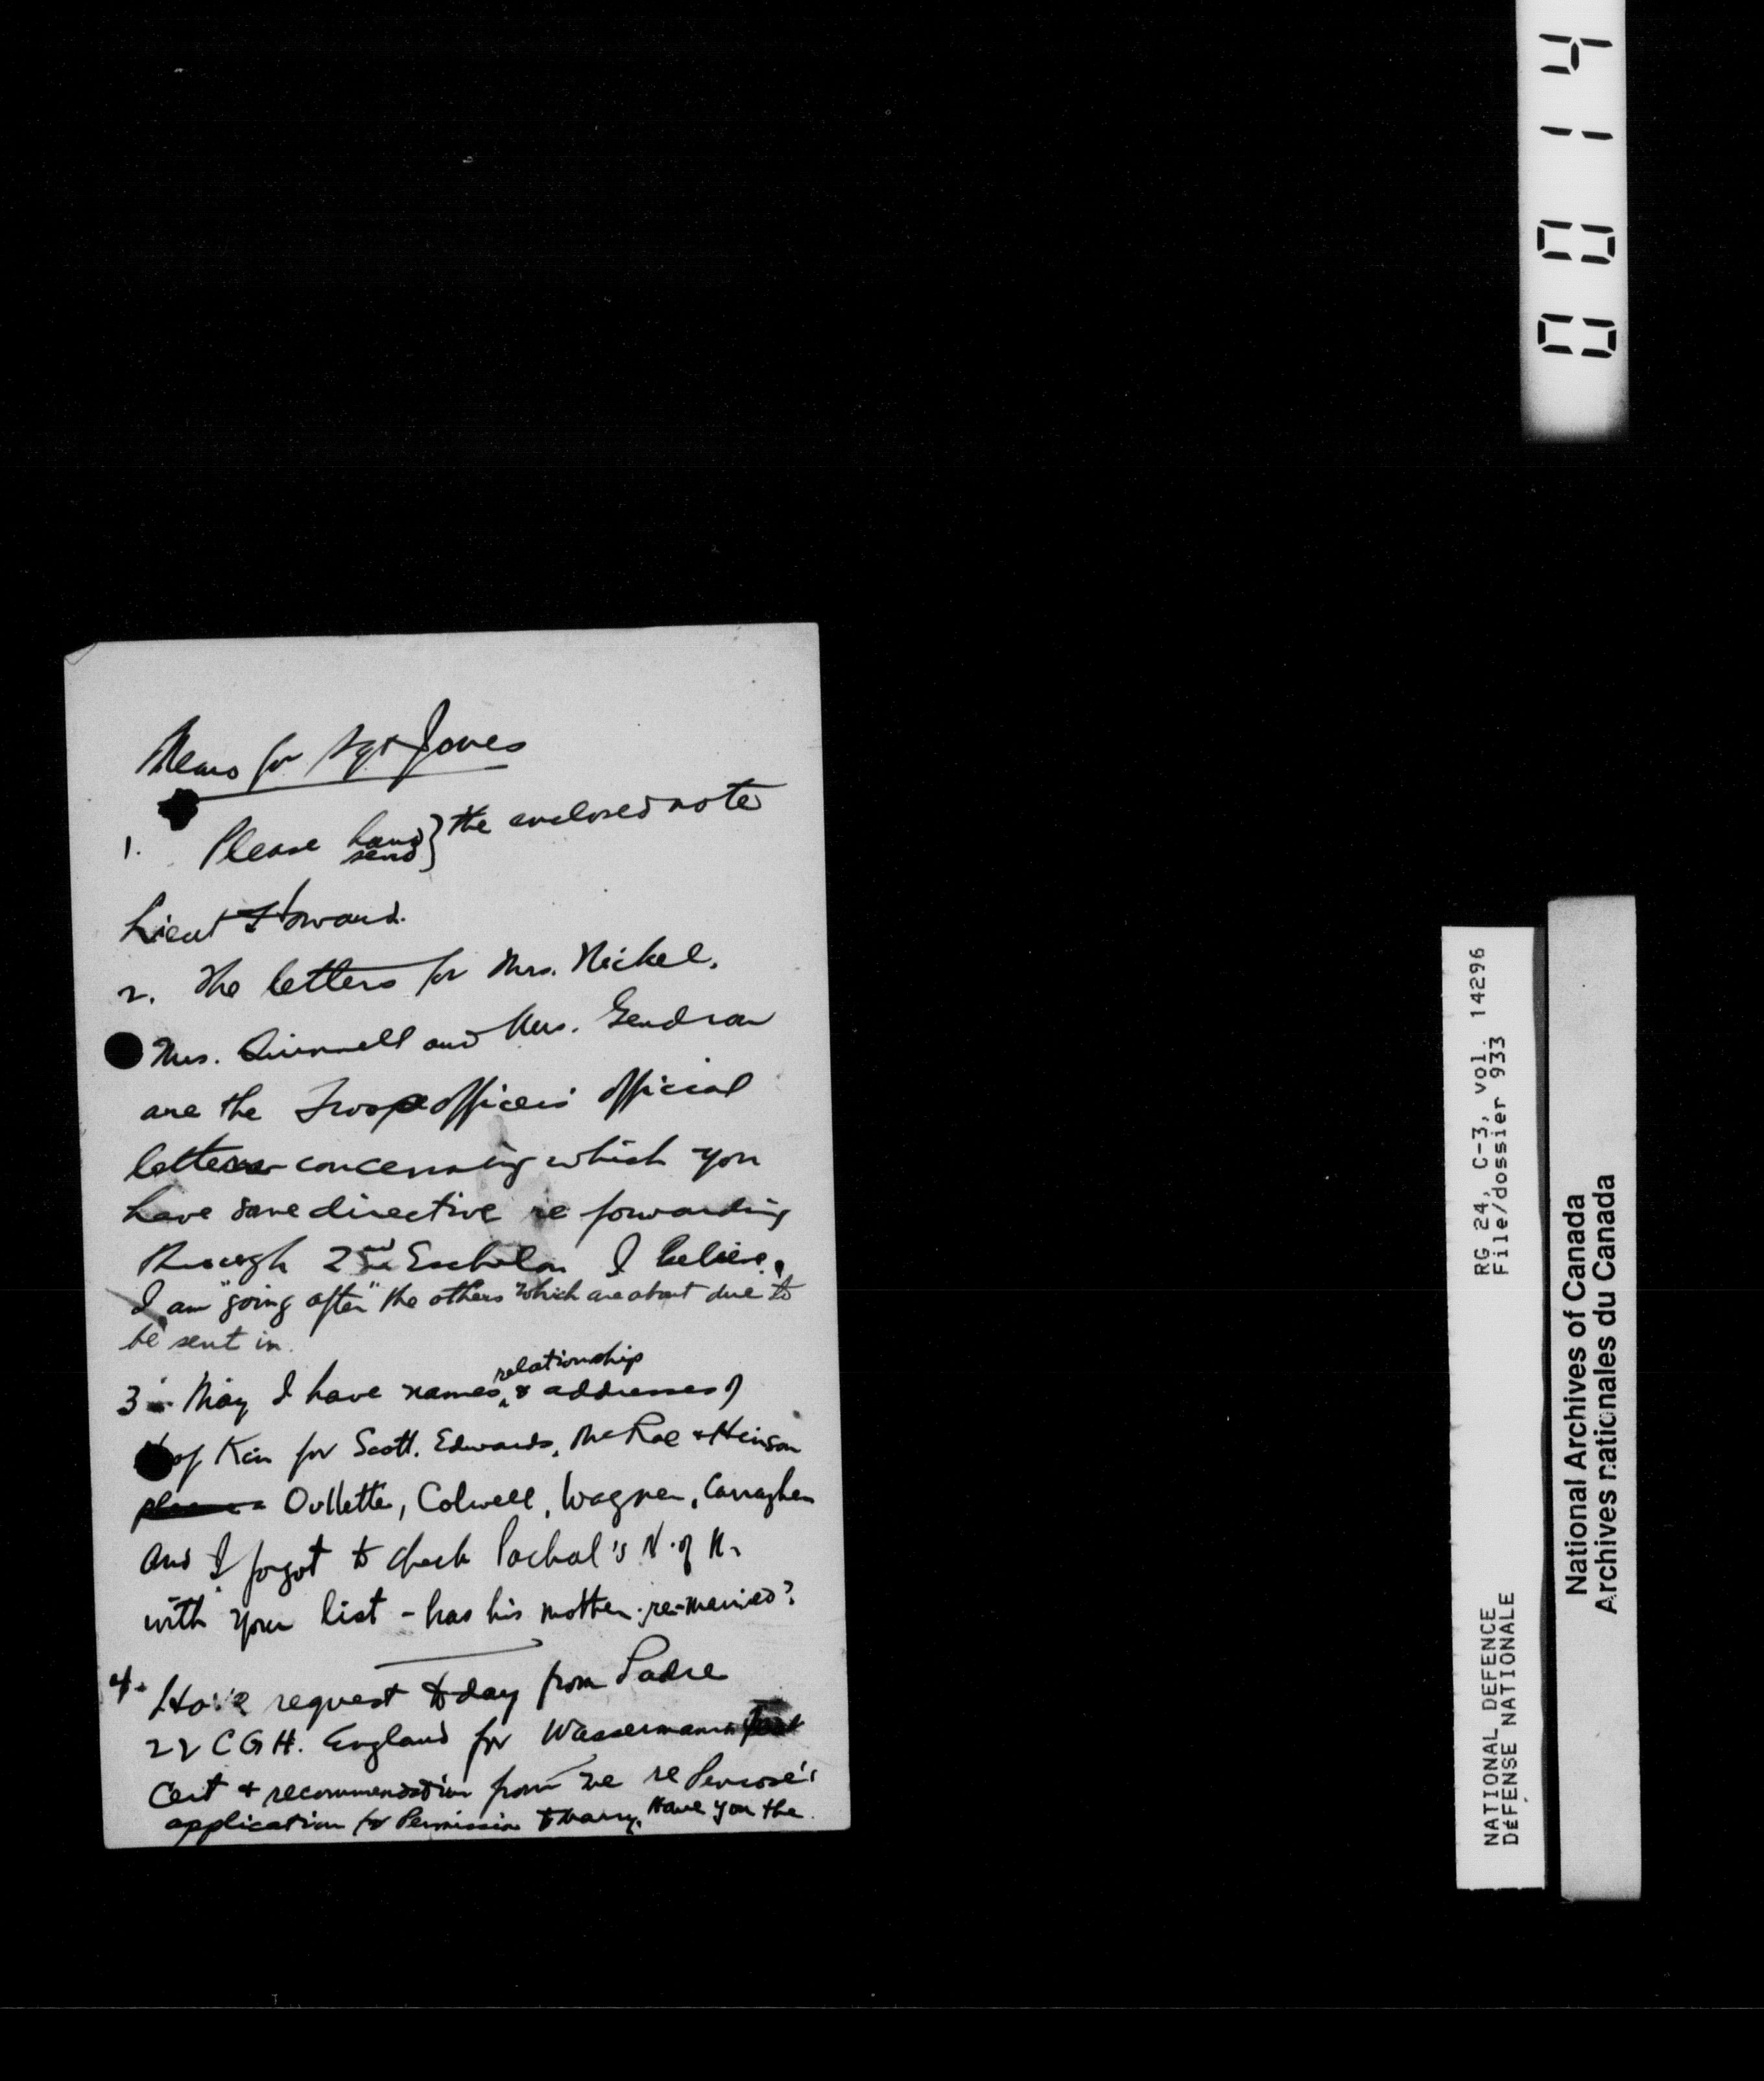 Memo for Sgt Jones
1. Please hand } the enclosed note
send
Lieut Howard.
2. The letters for Mrs. Nickel,
Mrs. Quinnell and Mrs. Gendron
are the Troop officers' official
letters concerning which you
have some directive re forwarding
through 2nd Eschelon I believe.
I am "going after" the others which are about due to
be sent in.
relationship
3. May I have names, & addresses of
N of Kin for Scott, Edwards, McRae & Hinson
Oullette, Colwell, Wagner, Carragher
And I forgot to check Pachal's N. of K.
with your list - has his mother re-married?
4. Have request today from Padre
22 CGH. England for Wassermann test
Cert & recommendation from me re Penrose's
application for Permission to marry. Have you the
0014
RG 24, C-3, vol. 14296
File/dossier 933
NATIONAL DEFENCE
DÉFENSE NATIONALE
National Archives of Canada
Archives nationales du Canada